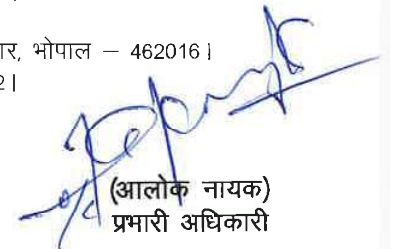 र, भोपाल – 462016।
2।
(आलोक नायक)
प्रभारी अधिकारी